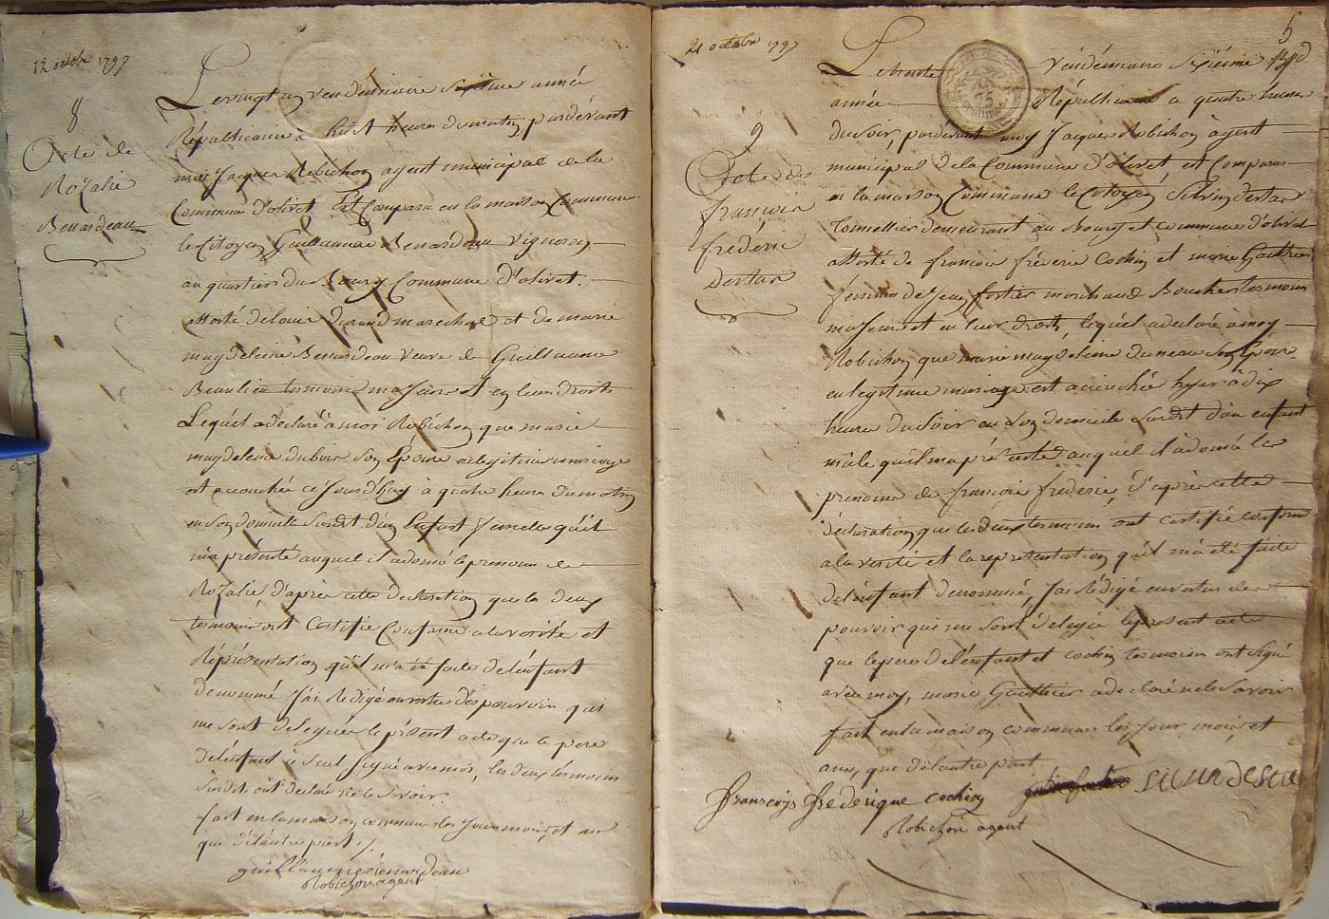 12 octobre 1797
8
Acte de
Rozalie
Benardeau
Le vingt un vendémiaire Sixième année
Républicaine à huit heure du matin pardevant
moi Jaques Robichon agent municipal de la
Commune d'olivet Est Comparu en la maison Commune
le Citoyen Guillaume Benardeau vigneron
au quartier du Bourg Commune d'olivet.
assisté de Durand marechal et de marie
magdeleine Benardeau veuve de Guillaume
Beaulieu temoins majeurs et en leur droits
Lequel a declaré à moi Robichon que marie
magdeleine dubois son Epouse en legitime mariage
est accouchée ce Jourd'huy à quatre heure du matin
en son domicile Susdit d'un Enfant femelle qu'il
m'a présenté auquel il a donné le prenom de
Rozalie d'après cette declaration que les deux
temoins ont Certifié Conforme a la vérité et
Réprésentation qu'il m'a été faite de l'enfant
denommé J'ai Redigé en vertu des pouvoirs qui
me sont delegués le présent acte que le pere
de l'enfant a seul signé avec moi, les deux temoins
susdit ont declaré ne le Savoir.
fait en la maison commune les Jour mois et an
que d'autre part ./.
guillaume benardeau
Robichon agent
5
21 octobre 1797
9
Acte de
françois
fréderic
Le trente vendémiaire sixième
année Républicaine a quatre heure
du soir, pardevant moy Jaques Robichon agent
municipal de la Commune d'olivet est Comparu
en la maison Commune le Citoyen Silvin
Tonnellier demeurant au Bourg et commune d'olivet
assisté de françois fréderic Cochin et marie Gauthier
femme de Jean fortier marchand Boucher temoins
majeurs et en leur droits, lequel a declaré à moy
Robichon que marie magdeleine duneau son Epouse
en legitime mariage est accouchée hyer à dix
heure du Soir en son domicile susdit d'un enfant
mâle qu'il m'a présenté auquel il a donné les
prenoms de françois fréderic, d'après cette
déclaration que les deux temoins ont certifié conforme
a la verité et la representation qu'il m'a été faite
de l'enfant denommé, J'ai Rédigé en vertu des
pouvoir qui me sont délégué le présent acte
que le pere de l'enfant et cochin temoin ont signé
avec moy, marie Gauthier a declaré ne le Savoir
fait en la maison commune les jour, mois, et
ans, que d'autre part
francois frederique cochin
Robichon agent